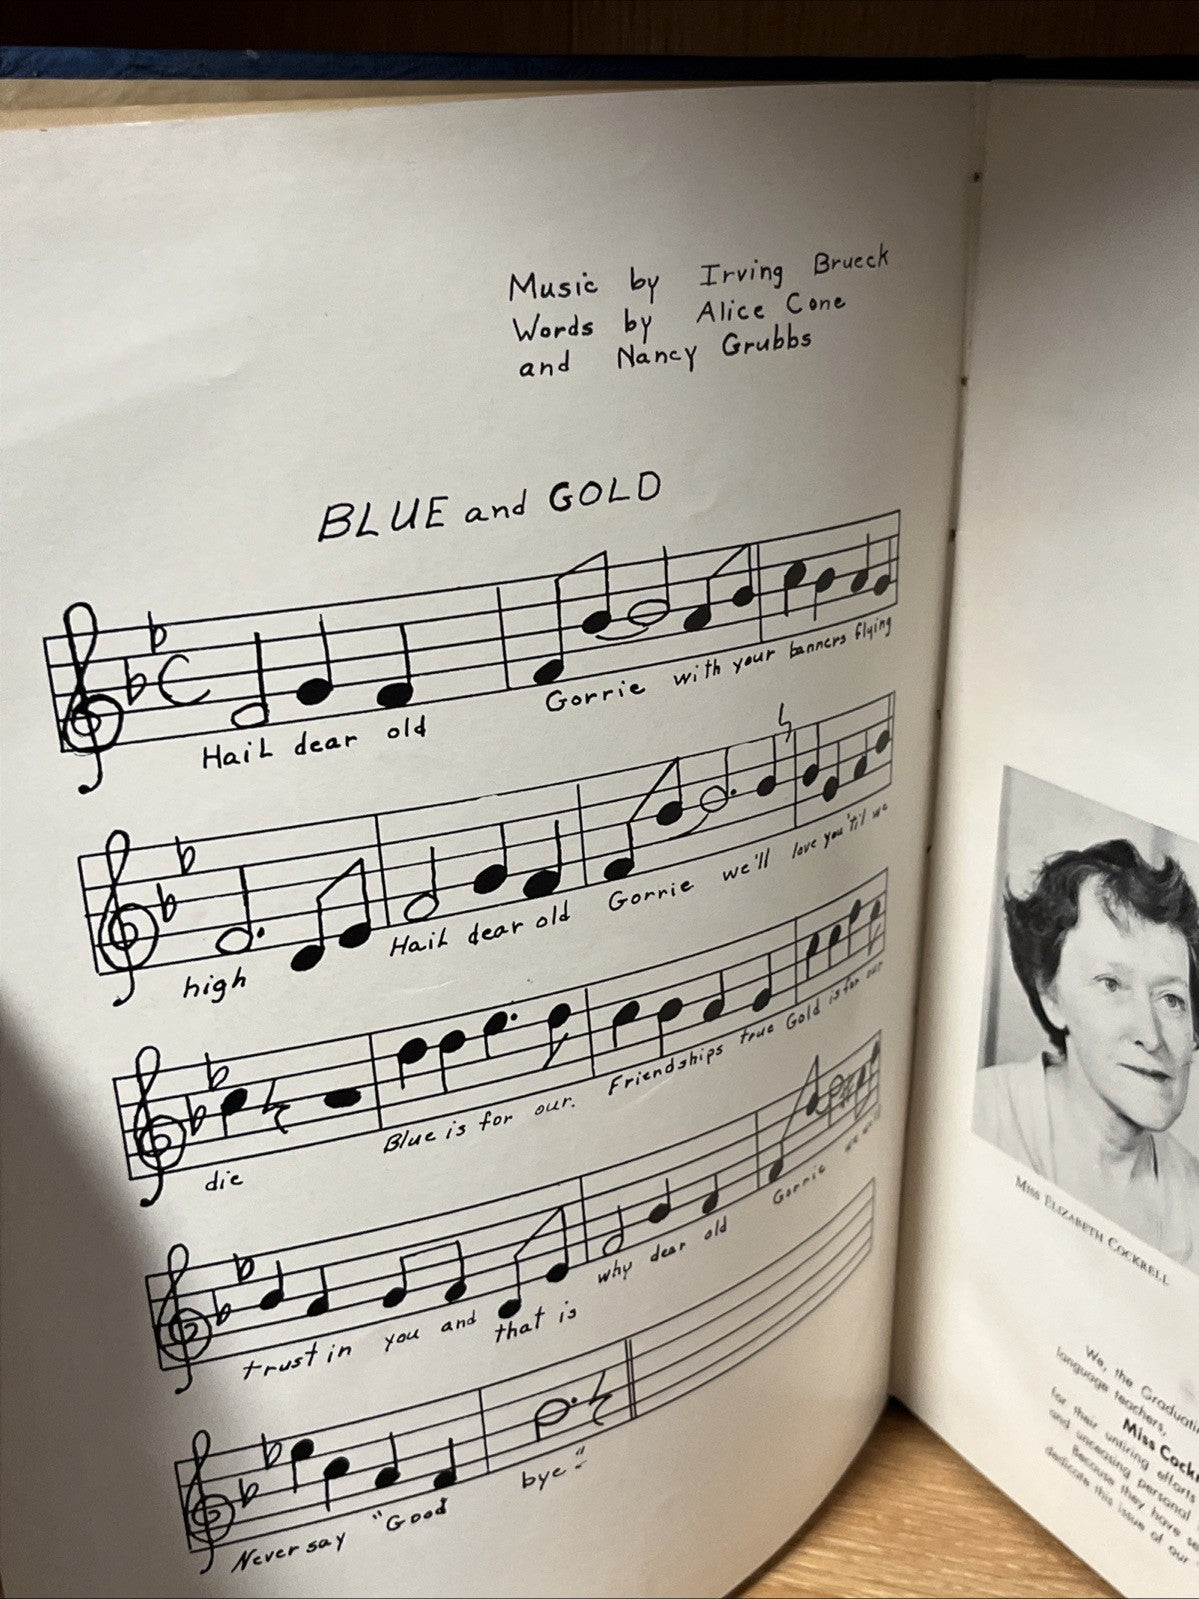 Music by Irving Brueck
Words by Alice Cone
and Nancy Grubbs
BLUE and GOLD
Hail dear old Gorrie with your banners flying
high Hail dear old Gorrie we'll love you 'til we
die Blue is for our. Friendships true Gold is for our
trust in you and that is why dear old Gorrie we will
Never say "Good bye"
MISS ELIZABETH COCKRELL
We, the Graduati
language teachers,
Miss Cock
for their untiring efforts
and unceasing personal
Because they have se
dedicate this issue of our